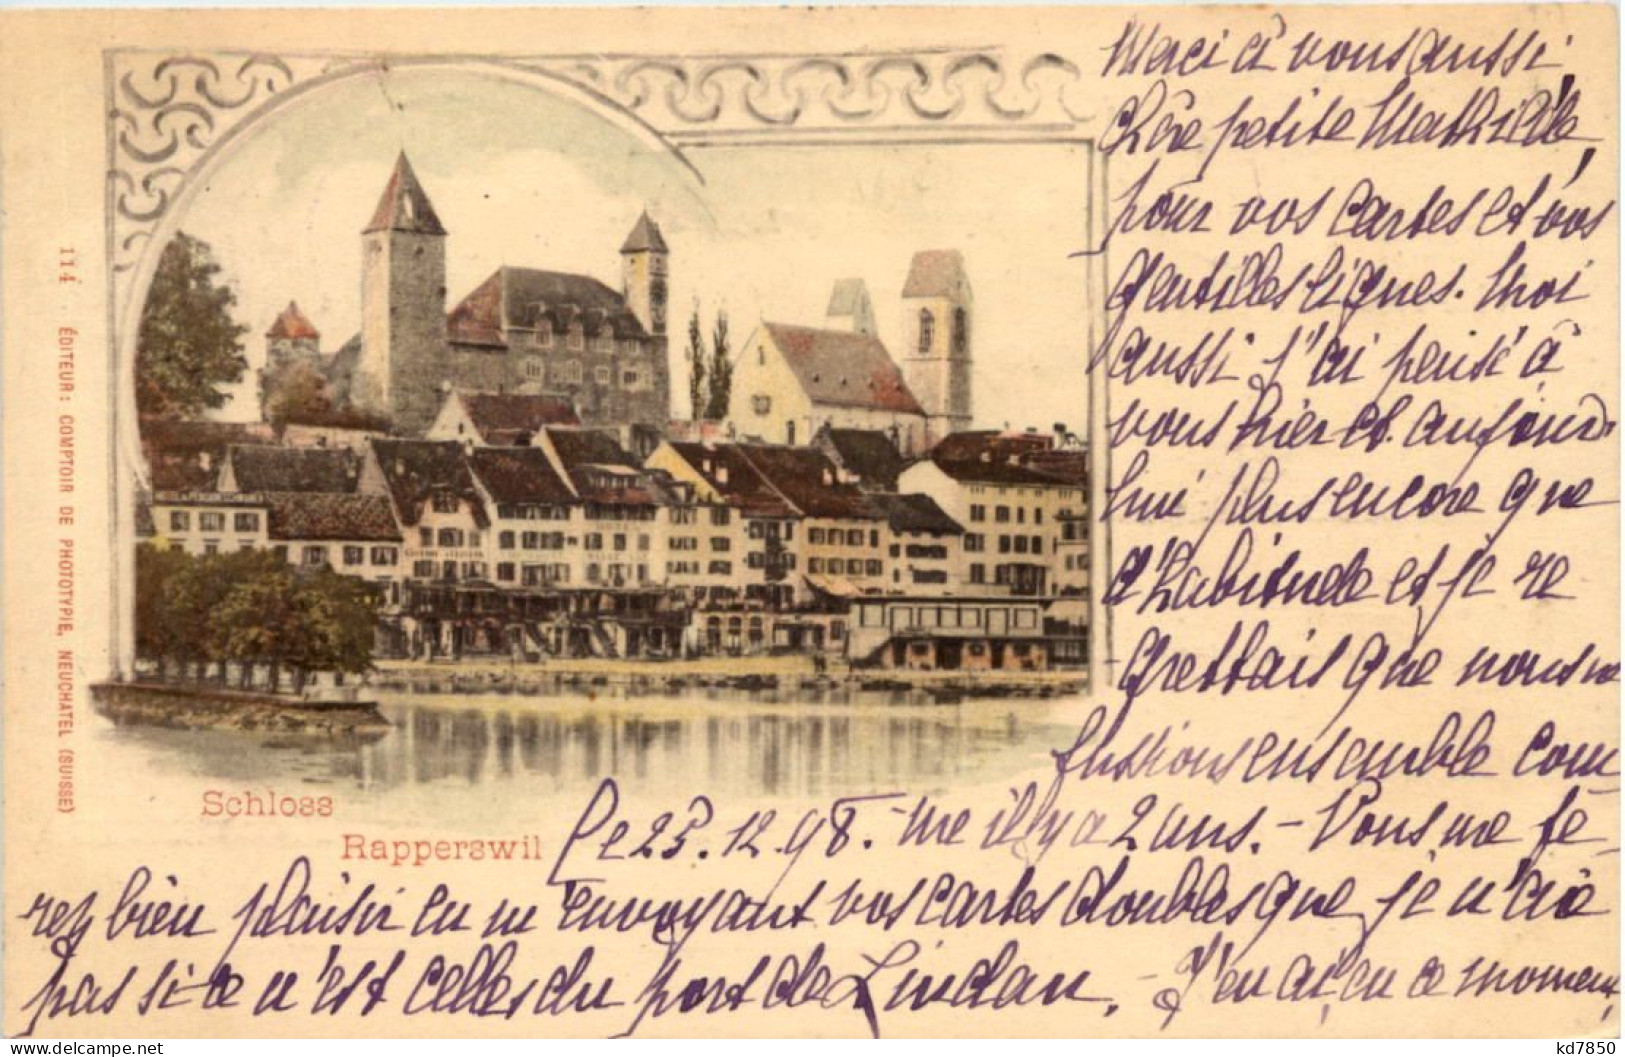 Merci à vous aussi,
chère petite Mathilde,
pour vos cartes et vos
gentilles lignes. Moi
aussi j'ai pensé à
vous hier et aujour-
hui plus encore que
d'habitude et je re
grettais que nous ne
fussions ensemble com
Le 25.12.98. - me il y a 2 ans. - Vous me fe-
rez bien plaisir en m'envoyant vos cartes doubles que je n'ai
pas si ce n'est celles du port de Lindau. - J'en ai, en ce moment,
Schloss
Rapperswil
114 . ÉDITEUR: COMPTOIR DE PHOTOTYPIE, NEUCHATEL (SUISSE)
https://www.delcampe.net
kd7850